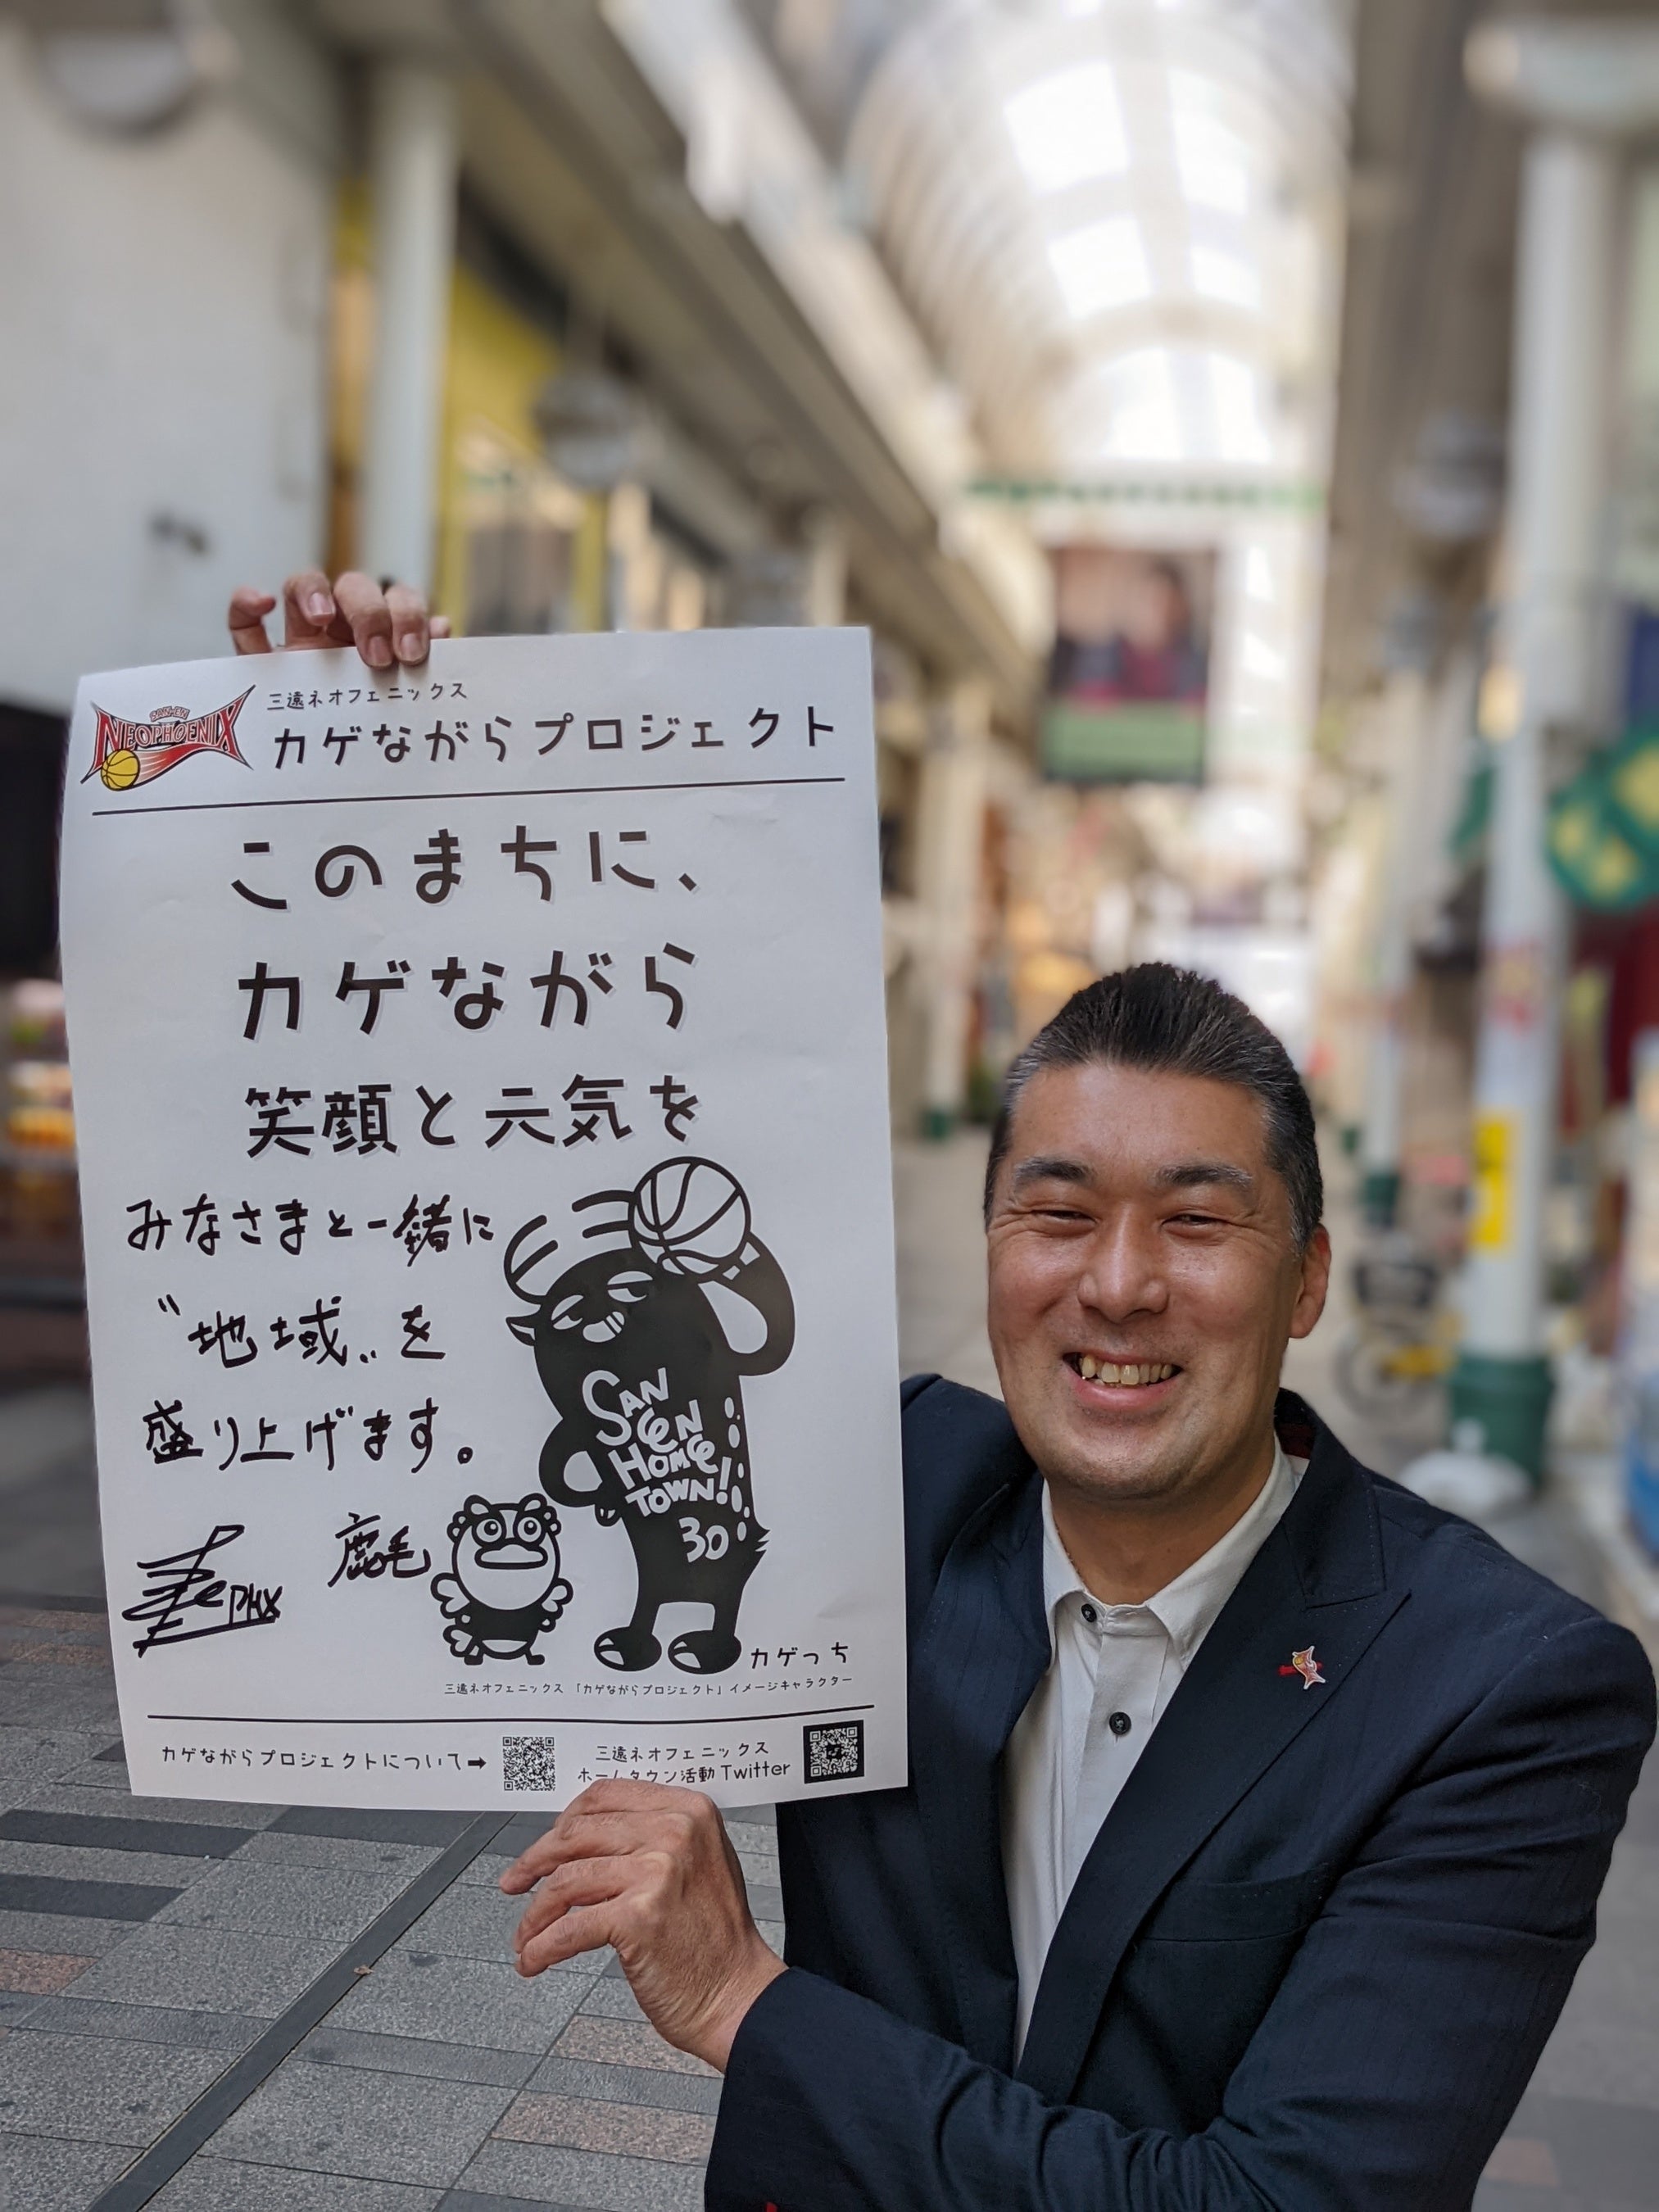 SAN-EN
NEOPHOENIX
三遠ネオフェニックス
カゲながらプロジェクト
このまちに、
カゲながら
笑顔と元気を
みなさまと一緒に
〝地域〟を
盛り上げます。
鹿毛
PHX
SAN
EN
HOME
TOWN!
30
カゲっち
三遠ネオフェニックス 「カゲながらプロジェクト」イメージキャラクター
カゲながらプロジェクトについて➡
三遠ネオフェニックス
ホームタウン活動 Twitter